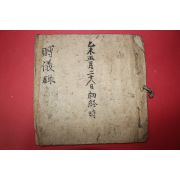 乙未五月二十八日初終時
賻儀錄